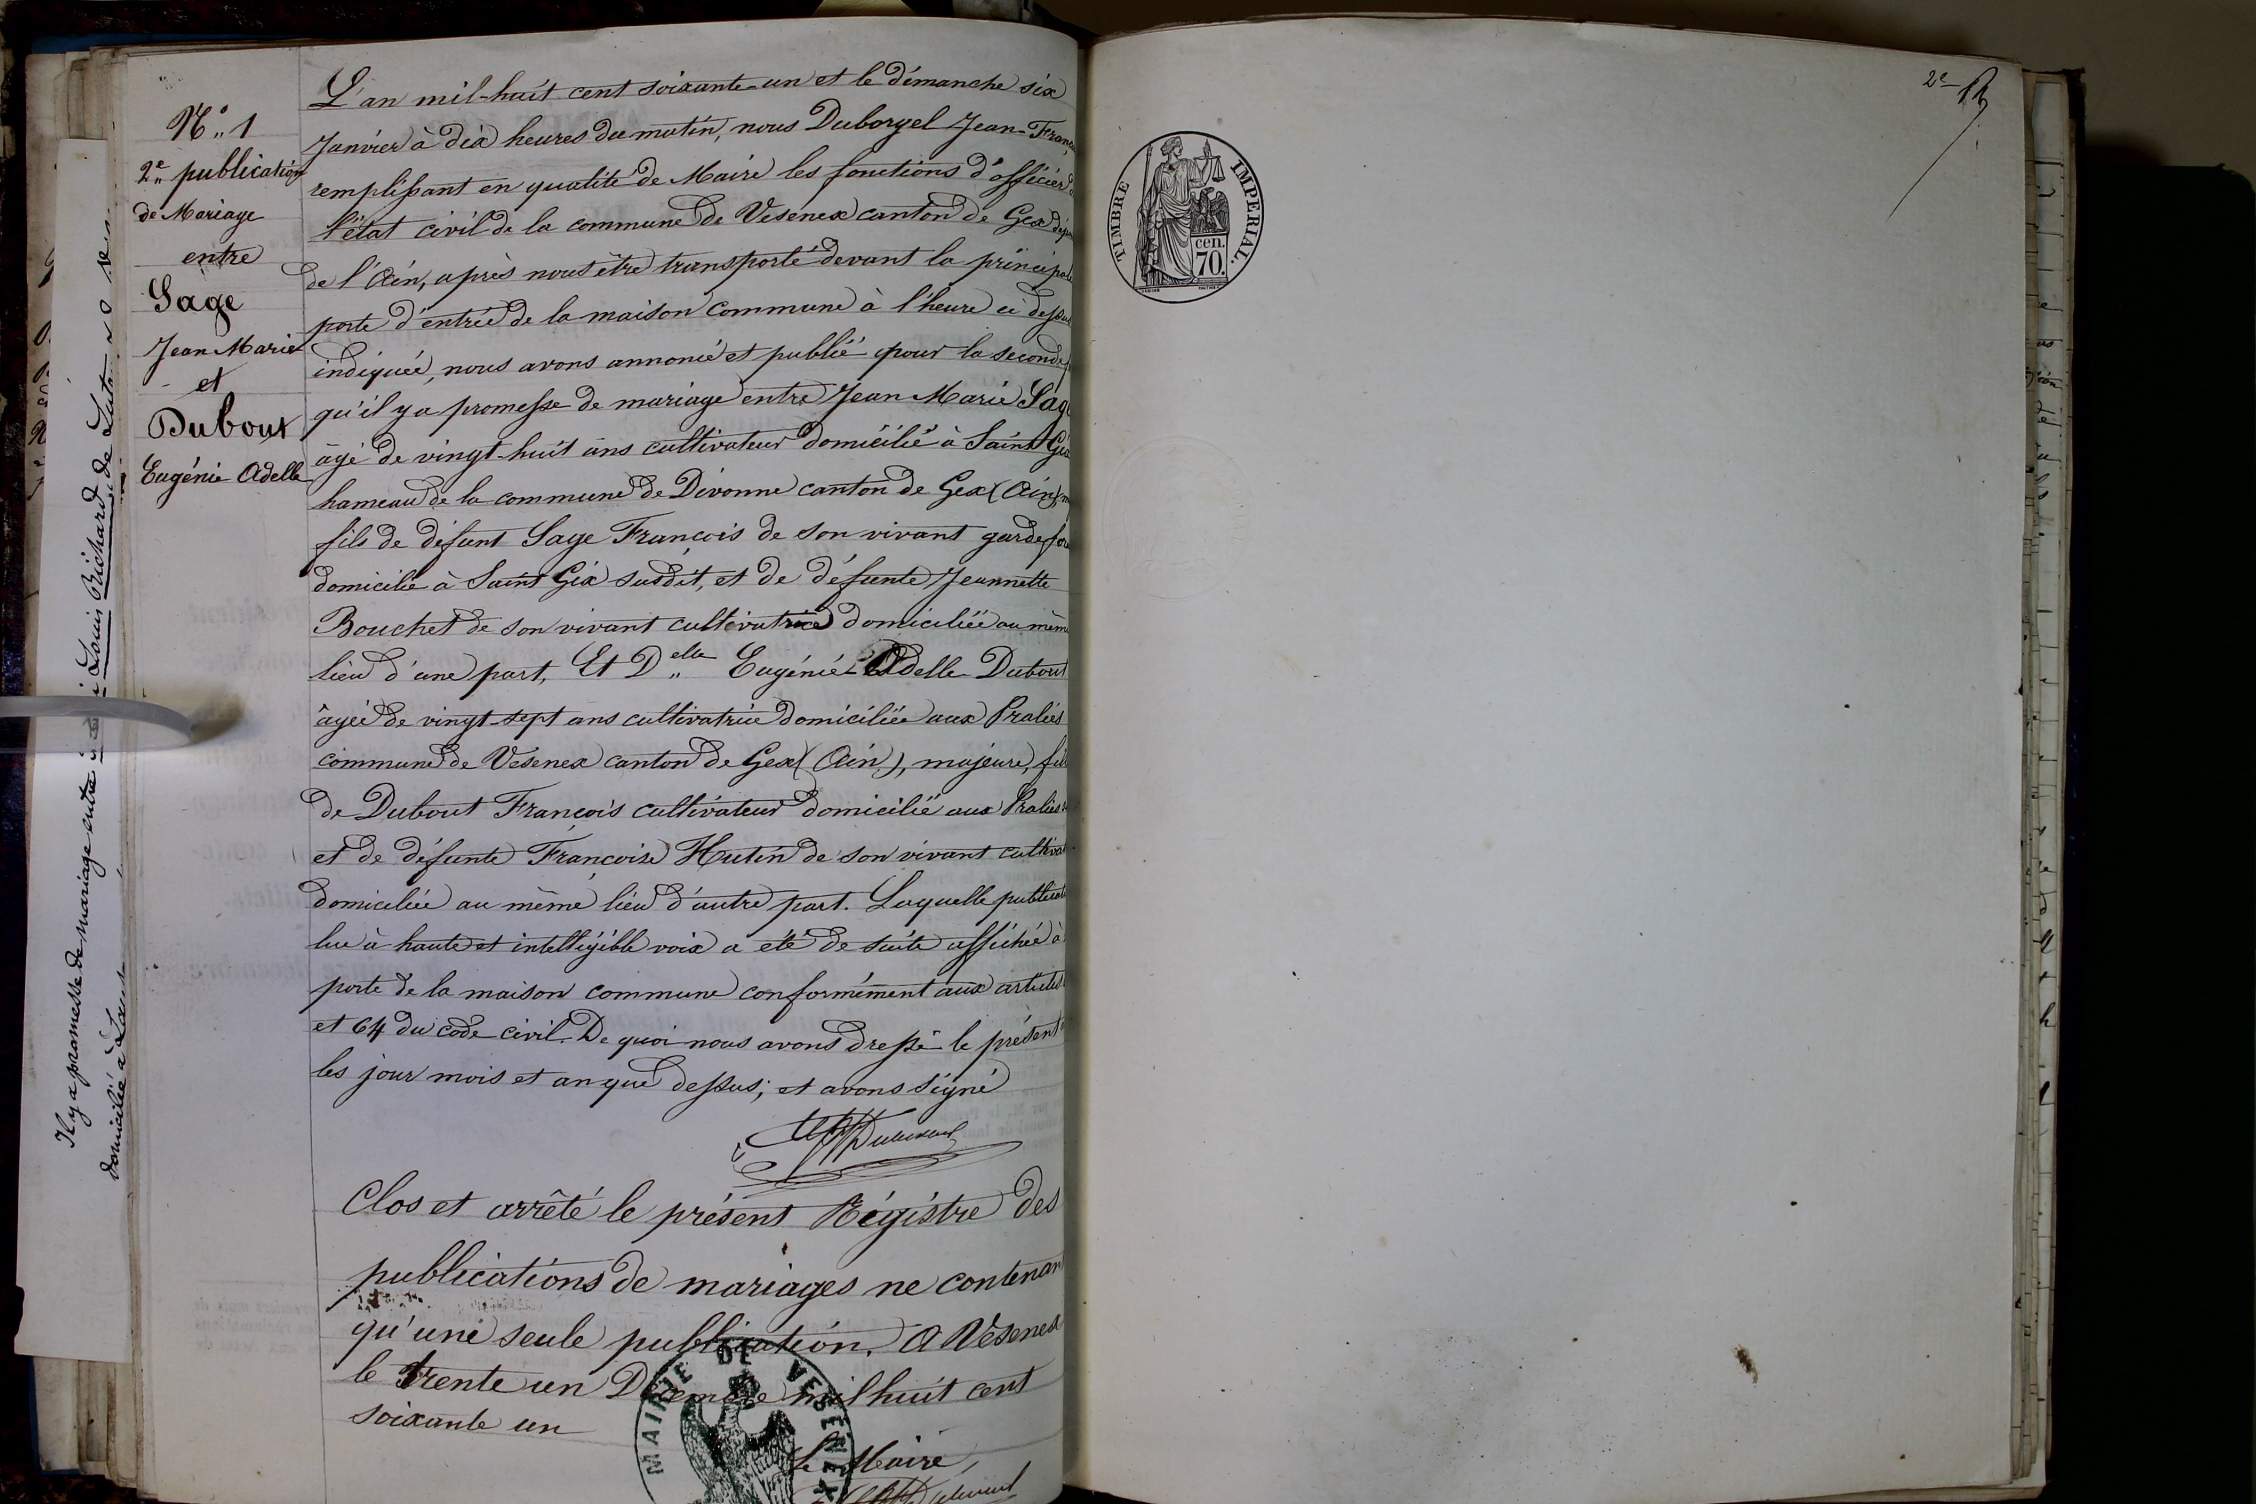 N° 1
2e publication
de Mariage
entre
Sage
Jean Marie
et
Dubout
Eugénie Adelle
L'an mil-huit cent soixante-un et le dimanche six
Janvier à dix heures du matin, nous Duborgel Jean-Franç
remplissant en qualité de Maire les fonctions d'officier
l'état civil de la commune de Vesenex canton de Gex
de l'Ain, après nous être transporté devant la principale
porte d'entrée de la maison commune à l'heure ci dessus
indiquée, nous avons annoncé et publié pour la seconde
qu'il y a promesse de mariage entre Jean Marie Sage
âgé de vingt-huit ans cultivateur domicilié à Saint Gix
hameau de la commune de Divonne canton de Gex (Ain)
fils de défunt Sage François de son vivant garde
domicilié à Saint Gix susdit, et de défunte Jeannette
Bouchet de son vivant cultivatrice domiciliée au même
lieu d'une part, Et Delle Eugénie Adelle Dubout
âgée de vingt-sept ans cultivatrice domiciliée aux Pralies
commune de Vesenex canton de Gex (Ain), majeure, fil
de Dubout François cultivateur domicilié aux Pralies
et de défunte Françoise Hutin de son vivant cultivat
domiciliée au même lieu d'autre part. Laquelle publicat
lue à haute et intelligible voix a été de suite affichée à
porte de la maison commune conformément aux articles
et 64 du code civil. De quoi nous avons dressé le présent
les jour mois et an que dessus; et avons signé
Clos et arrêté le présent Régistre des
publications de mariages ne contenant
qu'une seule publication. A Vesenex
le trente un Décembre mil huit cent
soixante un
Le Maire,
MAIRIE DE VESENEX
Il y a promesse de mariage entre Louis Brichard de
domiciliée à
2e
TIMBRE IMPERIAL.
cen.
70.